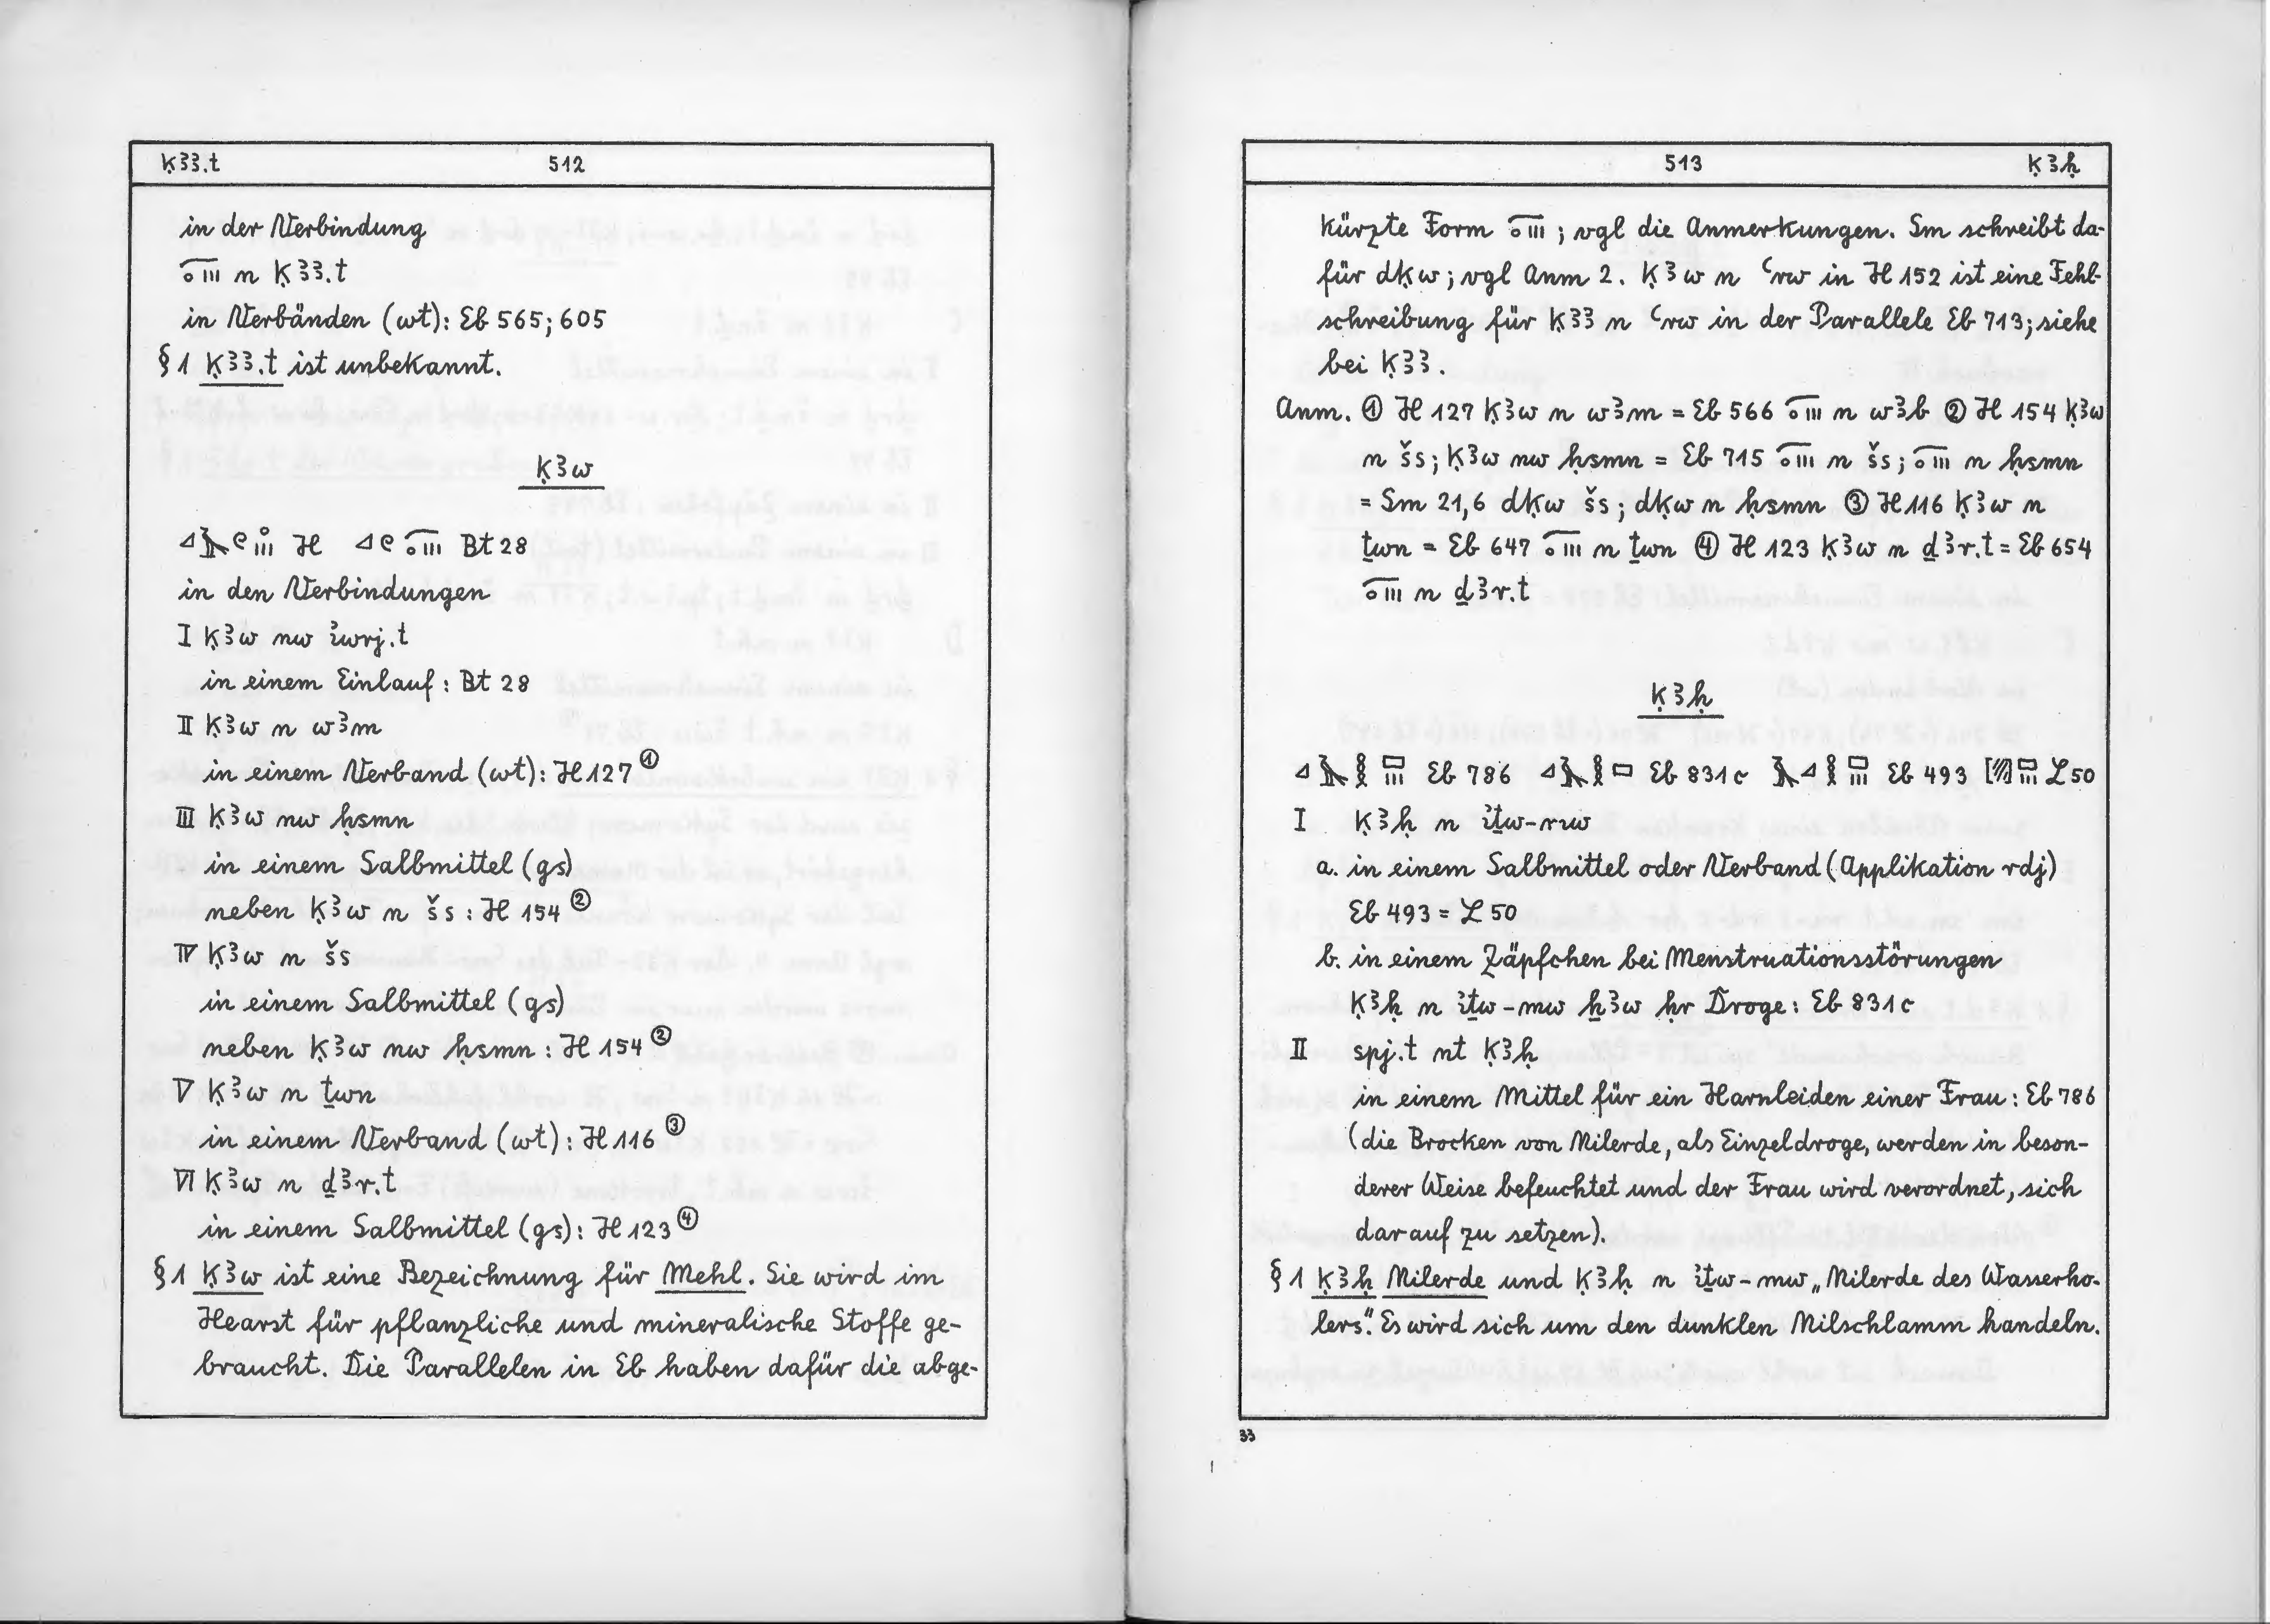 ḳꜣꜣ.t 512
in der Verbindung
n ḳꜣꜣ.t
in Verbänden (wt): Eb 565; 605
§ 1 ḳꜣꜣ.t ist unbekannt.
ḳꜣw
H Bt 28
in den Verbindungen
I ḳꜣw nw ỉwrj.t
in einem Einlauf: Bt 28
II ḳꜣw n wꜣm
in einem Verband (wt): H 127 ①
III ḳꜣw nw ḥsmn
in einem Salbmittel (gs)
neben ḳꜣw n šs : H 154 ②
IV ḳꜣw n šs
in einem Salbmittel (gs)
neben ḳꜣw nw ḥsmn : H 154 ②
V ḳꜣw n ṯwn
in einem Verband (wt): H 116 ③
VI ḳꜣw n ḏꜣr.t
in einem Salbmittel (gs): H 123 ④
§ 1 ḳꜣw ist eine Bezeichnung für Mehl. Sie wird im
Hearst für pflanzliche und mineralische Stoffe ge-
braucht. Die Parallelen in Eb haben dafür die abge-
513 ḳꜣḥ
kürzte Form ; vgl die Anmerkungen. Sm schreibt da-
für dḳw; vgl Anm 2. ḳꜣw n ꜥrw in H 152 ist eine Fehl-
schreibung für ḳꜣꜣ n ꜥrw in der Parallele Eb 713; siehe
bei ḳꜣꜣ.
Anm. ① H 127 ḳꜣw n wꜣm = Eb 566 n wꜣb ② H 154 ḳꜣw
n šs; ḳꜣw nw ḥsmn = Eb 715 n šs; n ḥsmn
= Sm 21,6 dḳw šs; dḳw n ḥsmn ③ H 116 ḳꜣw n
ṯwn = Eb 647 n ṯwn ④ H 123 ḳꜣw n ḏꜣr.t = Eb 654
n ḏꜣr.t
ḳꜣḥ
Eb 786 Eb 831c Eb 493 L 50
I ḳꜣḥ n ỉṯw-mw
a. in einem Salbmittel oder Verband (Applikation rdj)
Eb 493 = L 50
b. in einem Zäpfchen bei Menstruationsstörungen
ḳꜣḥ n ỉṯw-mw ẖꜣw ḥr Droge: Eb 831c
II spj.t nt ḳꜣḥ
in einem Mittel für ein Harnleiden einer Frau: Eb 786
(die Brocken von Nilerde, als Einzeldroge, werden in beson-
derer Weise befeuchtet und der Frau wird verordnet, sich
darauf zu setzen).
§ 1 ḳꜣḥ Nilerde und ḳꜣḥ n ỉṯw-mw „Nilerde des Wasserho-
lers". Es wird sich um den dunklen Nilschlamm handeln.
33